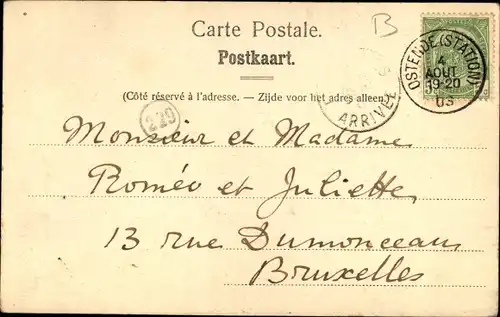 Carte Postale.
B
Postkaart.
(Côté réservé à l'adresse. – Zijde voor het adres alleen.)
OSTENDE (STATION)
4
AOUT
19-20
03
ARRIVÉE
229
Monsieur et Madame
Roméo et Juliette
13 rue Dumonceau
Bruxelles